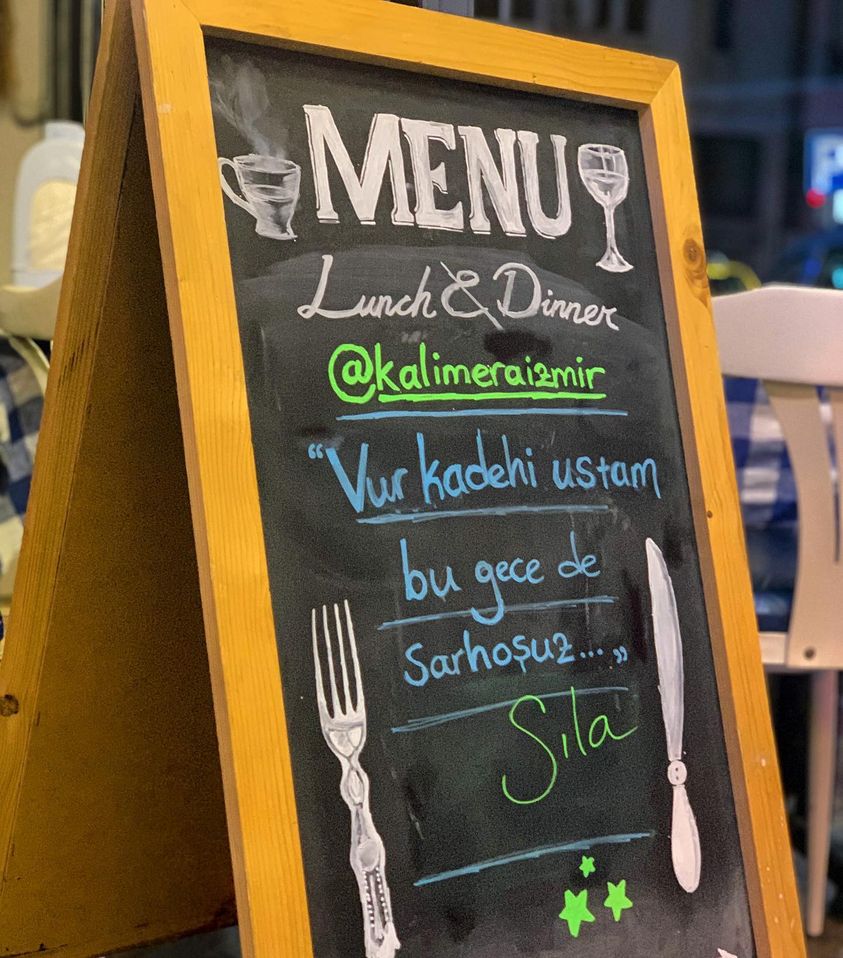 MENU
Lunch & Dinner
@kalimeraizmir
“Vur kadehi ustam
bu gece de
sarhoşuz...„
Sıla
P